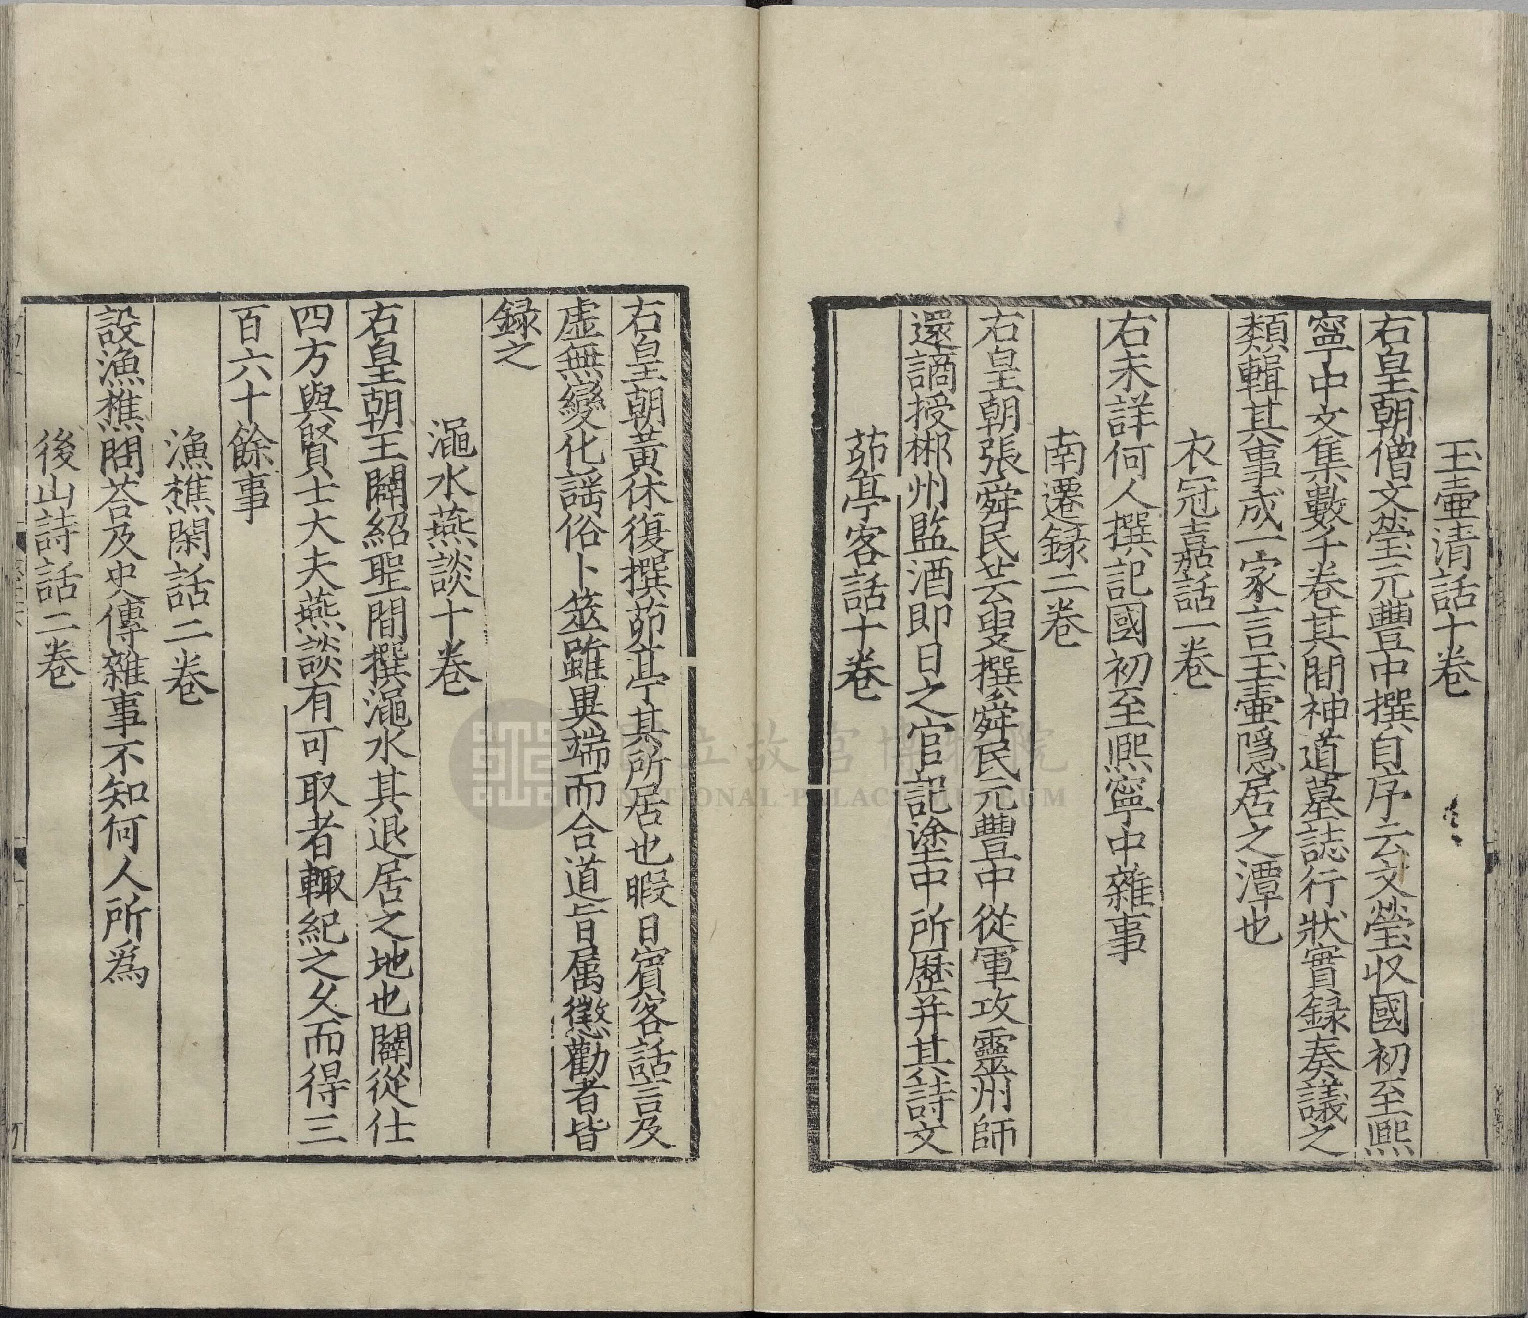 玉壷清話十卷
右皇朝僧文瑩元豐中撰自序云文瑩收國初至熙
寧中文集數千卷其間神道墓誌行狀實録奏議之
類輯其事成一家言玉壷隱居之潭也
衣冠嘉話一卷
右未詳何人撰記國初至熙寧中雜事
南遷録二卷
右皇朝張舜民芸叟撰舜民元豐中從軍攻靈州師
還謫授郴州監酒即日之官記塗中所歷并其詩文
茆亭客話十卷
右皇朝黄休復撰茆亭其所居也暇日賓客話言及
虛無變化謡俗卜筮雖異端而合道旨属懲勸者皆
録之
澠水燕談十卷
右皇朝王闢紹聖間撰澠水其退居之地也闢從仕
四方與賢士大夫燕談有可取者輙紀之久而得三
百六十餘事
漁樵閑話二卷
設漁樵問荅及史傳雜事不知何人所為
後山詩話二卷
國立故宮博物院
NATIONAL PALACE MUSEUM